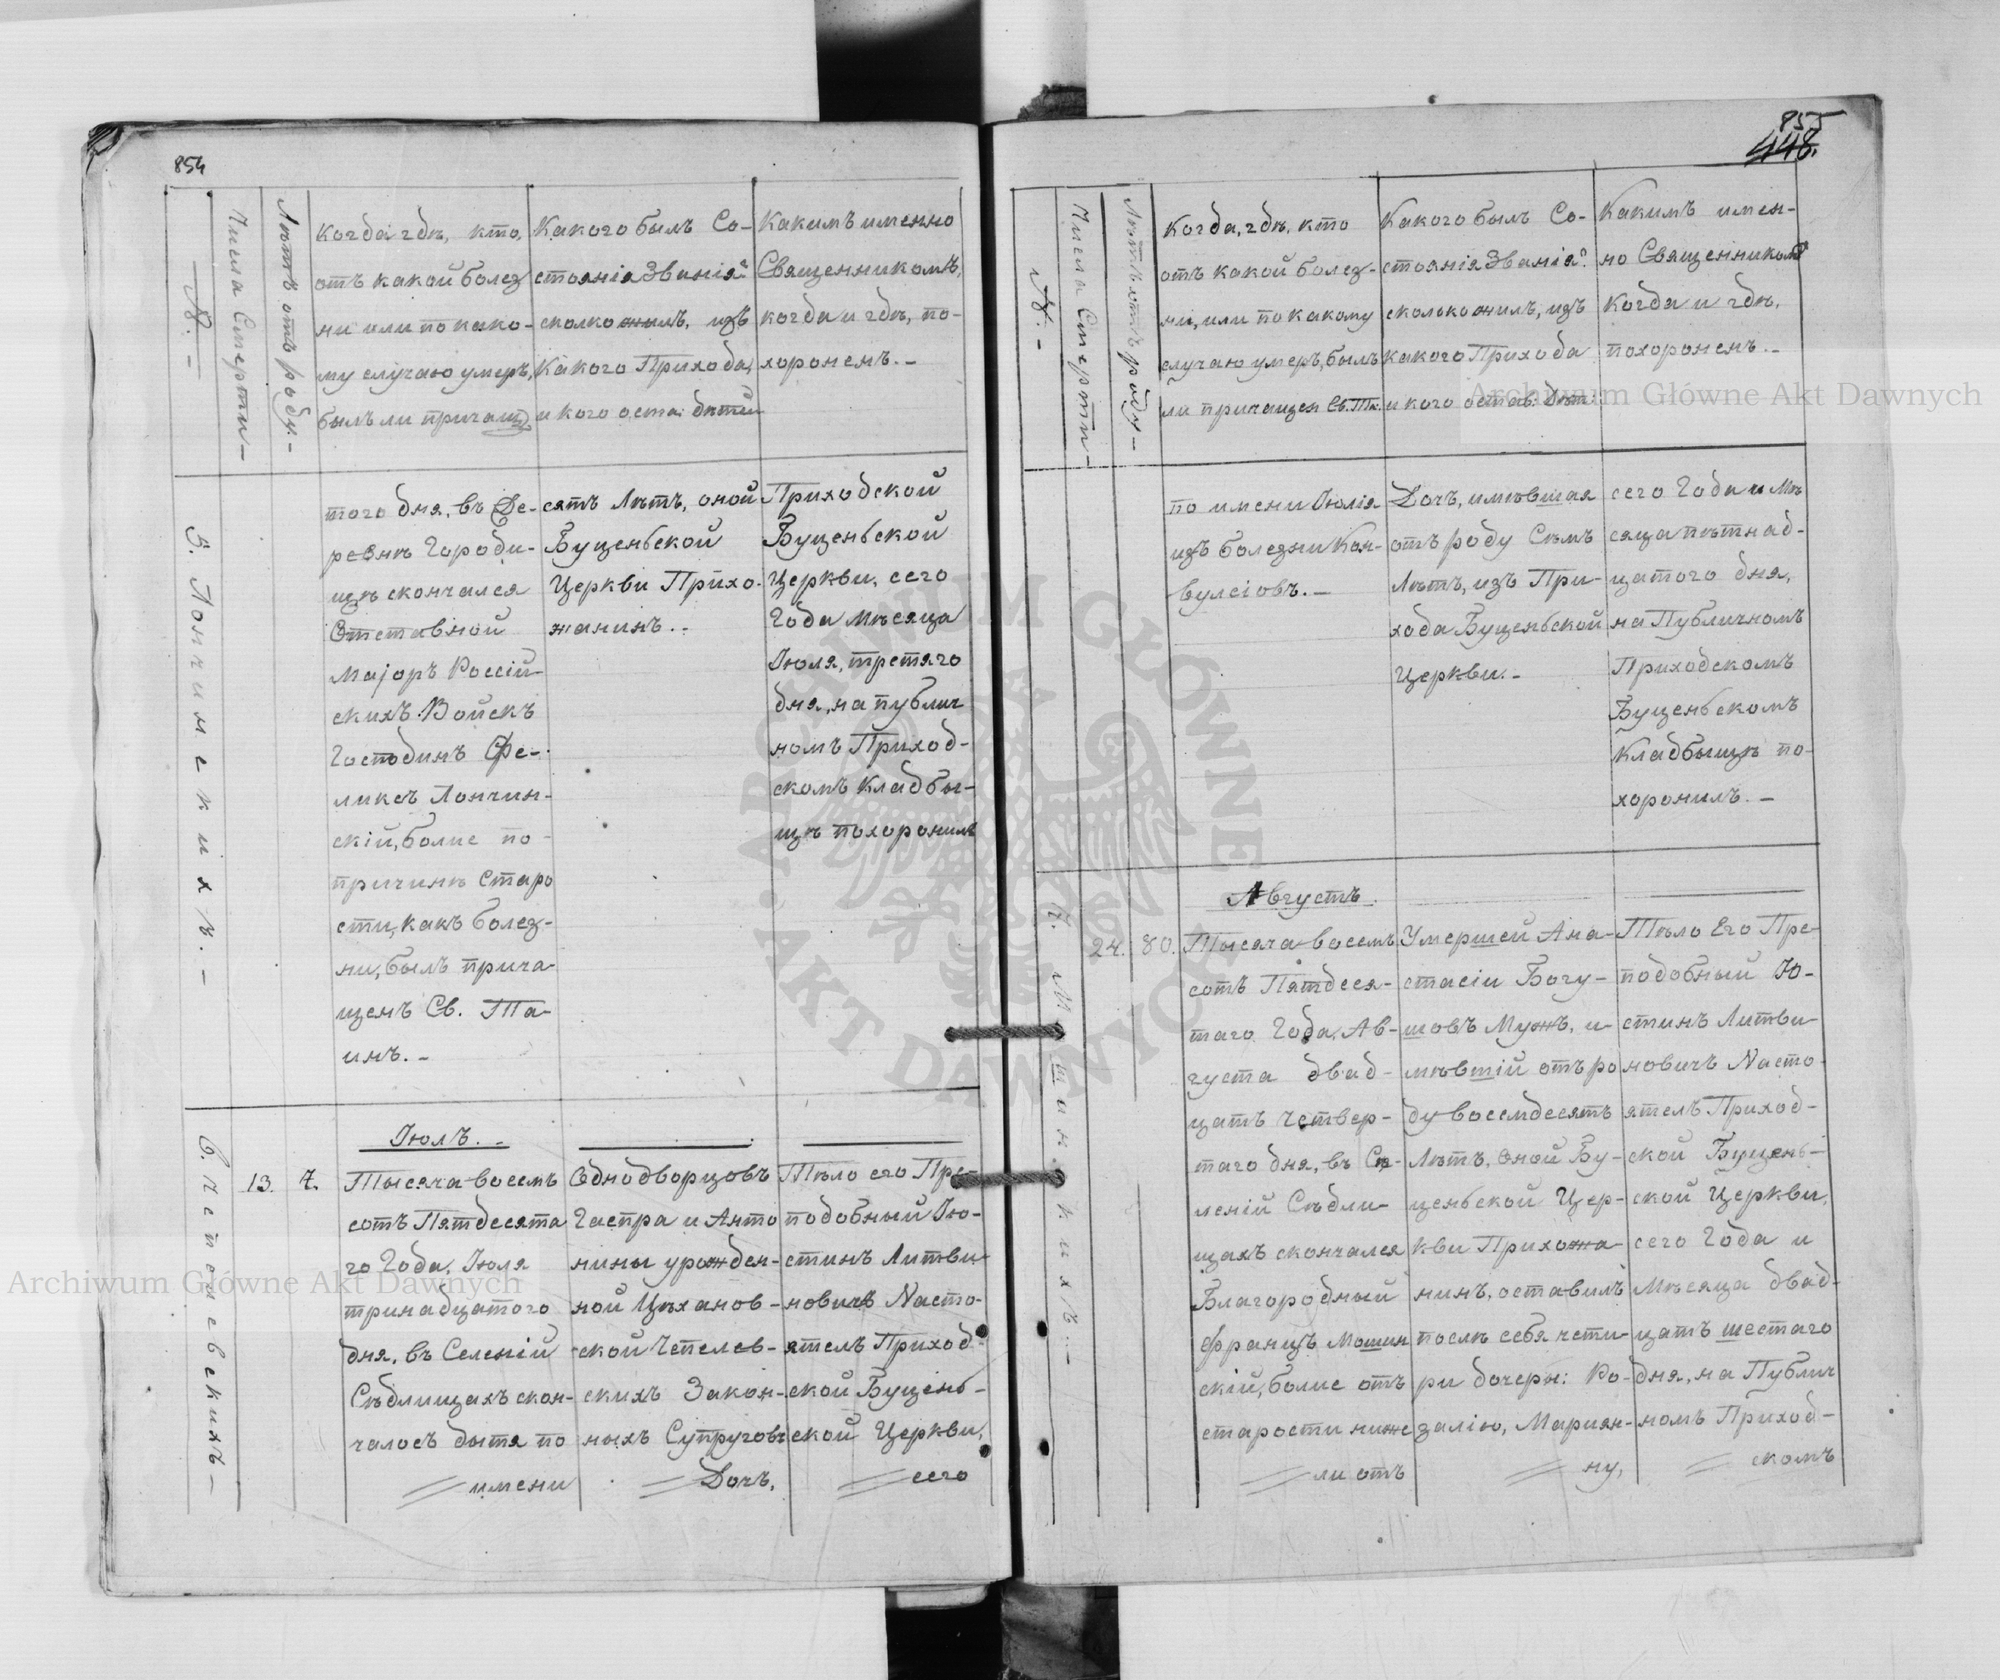 854
№. –
Числа Смерти –
Лѣтъ отъ роду. –
Когда, гдѣ, кто,
отъ какой болез
ни или по како-
му случаю умеръ,
былъ ли причащ
Какого былъ Со-
стоянія Званія?
сколко жилъ, изъ
Какого Прихода,
и кого оста: дѣтей
Какимъ именно
Священникомъ,
когда и гдѣ, по-
хороненъ. –
5. Лончинскихъ. –
того дня, въ Де-
ревнѣ Городи-
щѣ скончался
Отставной
Маjоръ Россій-
скихъ Войскъ
Господинъ Фе-
ликсъ Лончин-
скій, болие по-
причинѣ Старо
сти, какъ болез-
ни, былъ прича-
щенъ Св. Та-
инъ. –
сятъ Лѣтъ, оной
Бущеньской
Церкви Прихо-
жанинъ. –
Приходской
Бущеньской
Церкви, сего
Года Мѣсяца
Іюля, третяго
дня, на публич
номъ Приход-
скомъ Кладбы-
щѣ похоронилъ
6. Чепелевскихъ –
13.
7.
Іюлъ. –
Тысяча восемъ
сотъ Пятдесята
го Года, Іюля
тринадцатого
дня, въ Селеній
Сѣдлищахъ скон-
чалосъ дытя по
имени
Однодворцовъ
Гаспра и Анто
нины урожден-
ной Цѣханов-
ской Чепелев-
скихъ Закон-
ныхъ Супруговъ
Дочъ,
Тѣло его Пре-
подобный Ію-
стинъ Литви-
новичъ Nасто-
ятелъ Приход-
ской Бущень-
ской Церкви,
сего
855
448.
№. –
Числа Смерти –
Лѣтъ отъ роду –
Когда, гдѣ, кто
отъ какой болез-
ни, или по какому
случаю умеръ, былъ
ли причащен Св. Та:
Какого былъ Со-
стоянія Званія?
сколько жилъ, изъ
какого Прихода
и кого остав: дѣт:
Какимъ имен-
но Священникомъ
Когда и гдѣ,
похороненъ. –
по имени Юлія
изъ болезни Кон-
вулсіовъ. –
Дочъ, имѣвшая
отъ роду Семъ
Лѣтъ, изъ При-
хода Бущеньской
Церкви. –
сего Года и Мѣ
сяца пятнад-
цатого дня,
на Публичномъ
Приходскомъ
Бущеньскомъ
Кладбыщѣ по-
хоронилъ. –
24.
80.
Августъ.
Тысяча восемъ
сотъ Пятдеся-
таго Года, Ав-
густа двад-
цатъ Четвер-
таго дня, въ Се-
леній Сѣдли-
щахъ скончался
Благородный
Францъ Мошин
скій, болие отъ
старости ниже
ли отъ
Умершей Ана-
стасіи Богу-
шовъ Мужъ, и-
мѣвшій отъ ро
ду восемдесятъ
Лѣтъ, Оной Бу-
щеньской Цер-
кви Прихожа-
нинъ, оставилъ
послѣ себя чети-
ри дочеры: Ро-
залію, Мариян-
ну,
Тѣло Его Пре-
подобный Ю-
стинъ Литви
новичъ Nасто-
ятелъ Приход-
ской Бущень-
ской Церкви,
сего Года и
Мѣсяца двад-
цатъ шестаго
дня, на Публич
номъ Приход-
скомъ
Archiwum Główne Akt Dawnych
Archiwum Główne Akt Dawnych
ARCHIWUM GŁÓWNE
AKT DAWNYCH